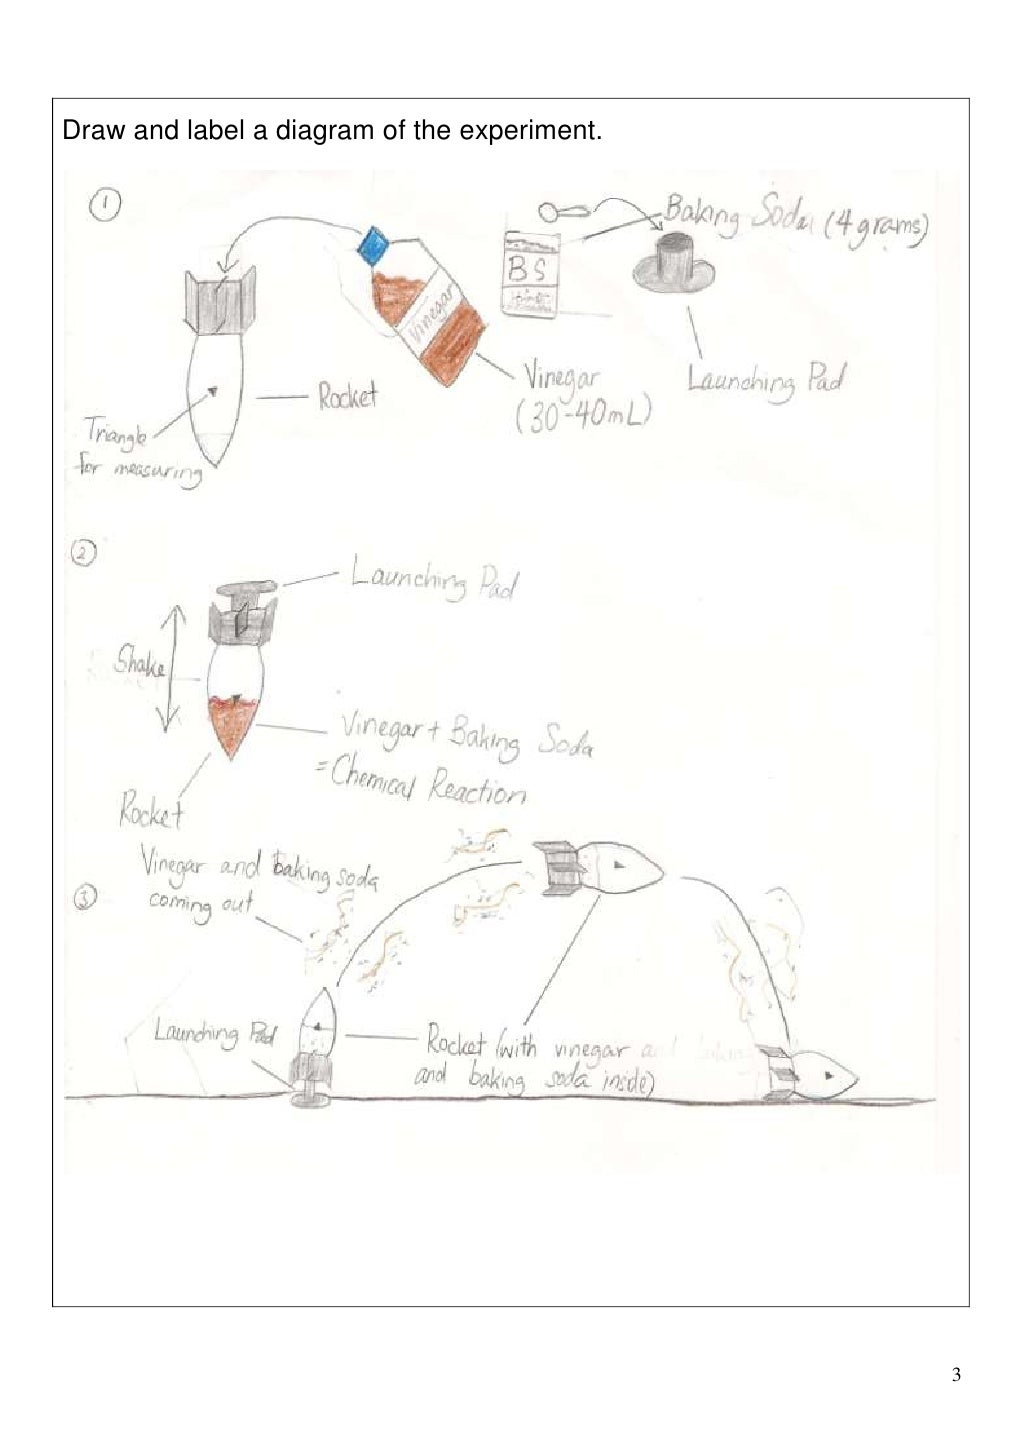 Draw and label a diagram of the experiment.
1
Baking Soda (4 grams)
BS
Vinegar
Vinegar
(30-40mL)
Launching Pad
Rocket
Triangle
for measuring
2
Launching Pad
Shake
Vinegar + Baking Soda
= Chemical Reaction
Rocket
3
Vinegar and baking soda
coming out
Launching Pad
Rocket (with vinegar
and baking soda inside)
3